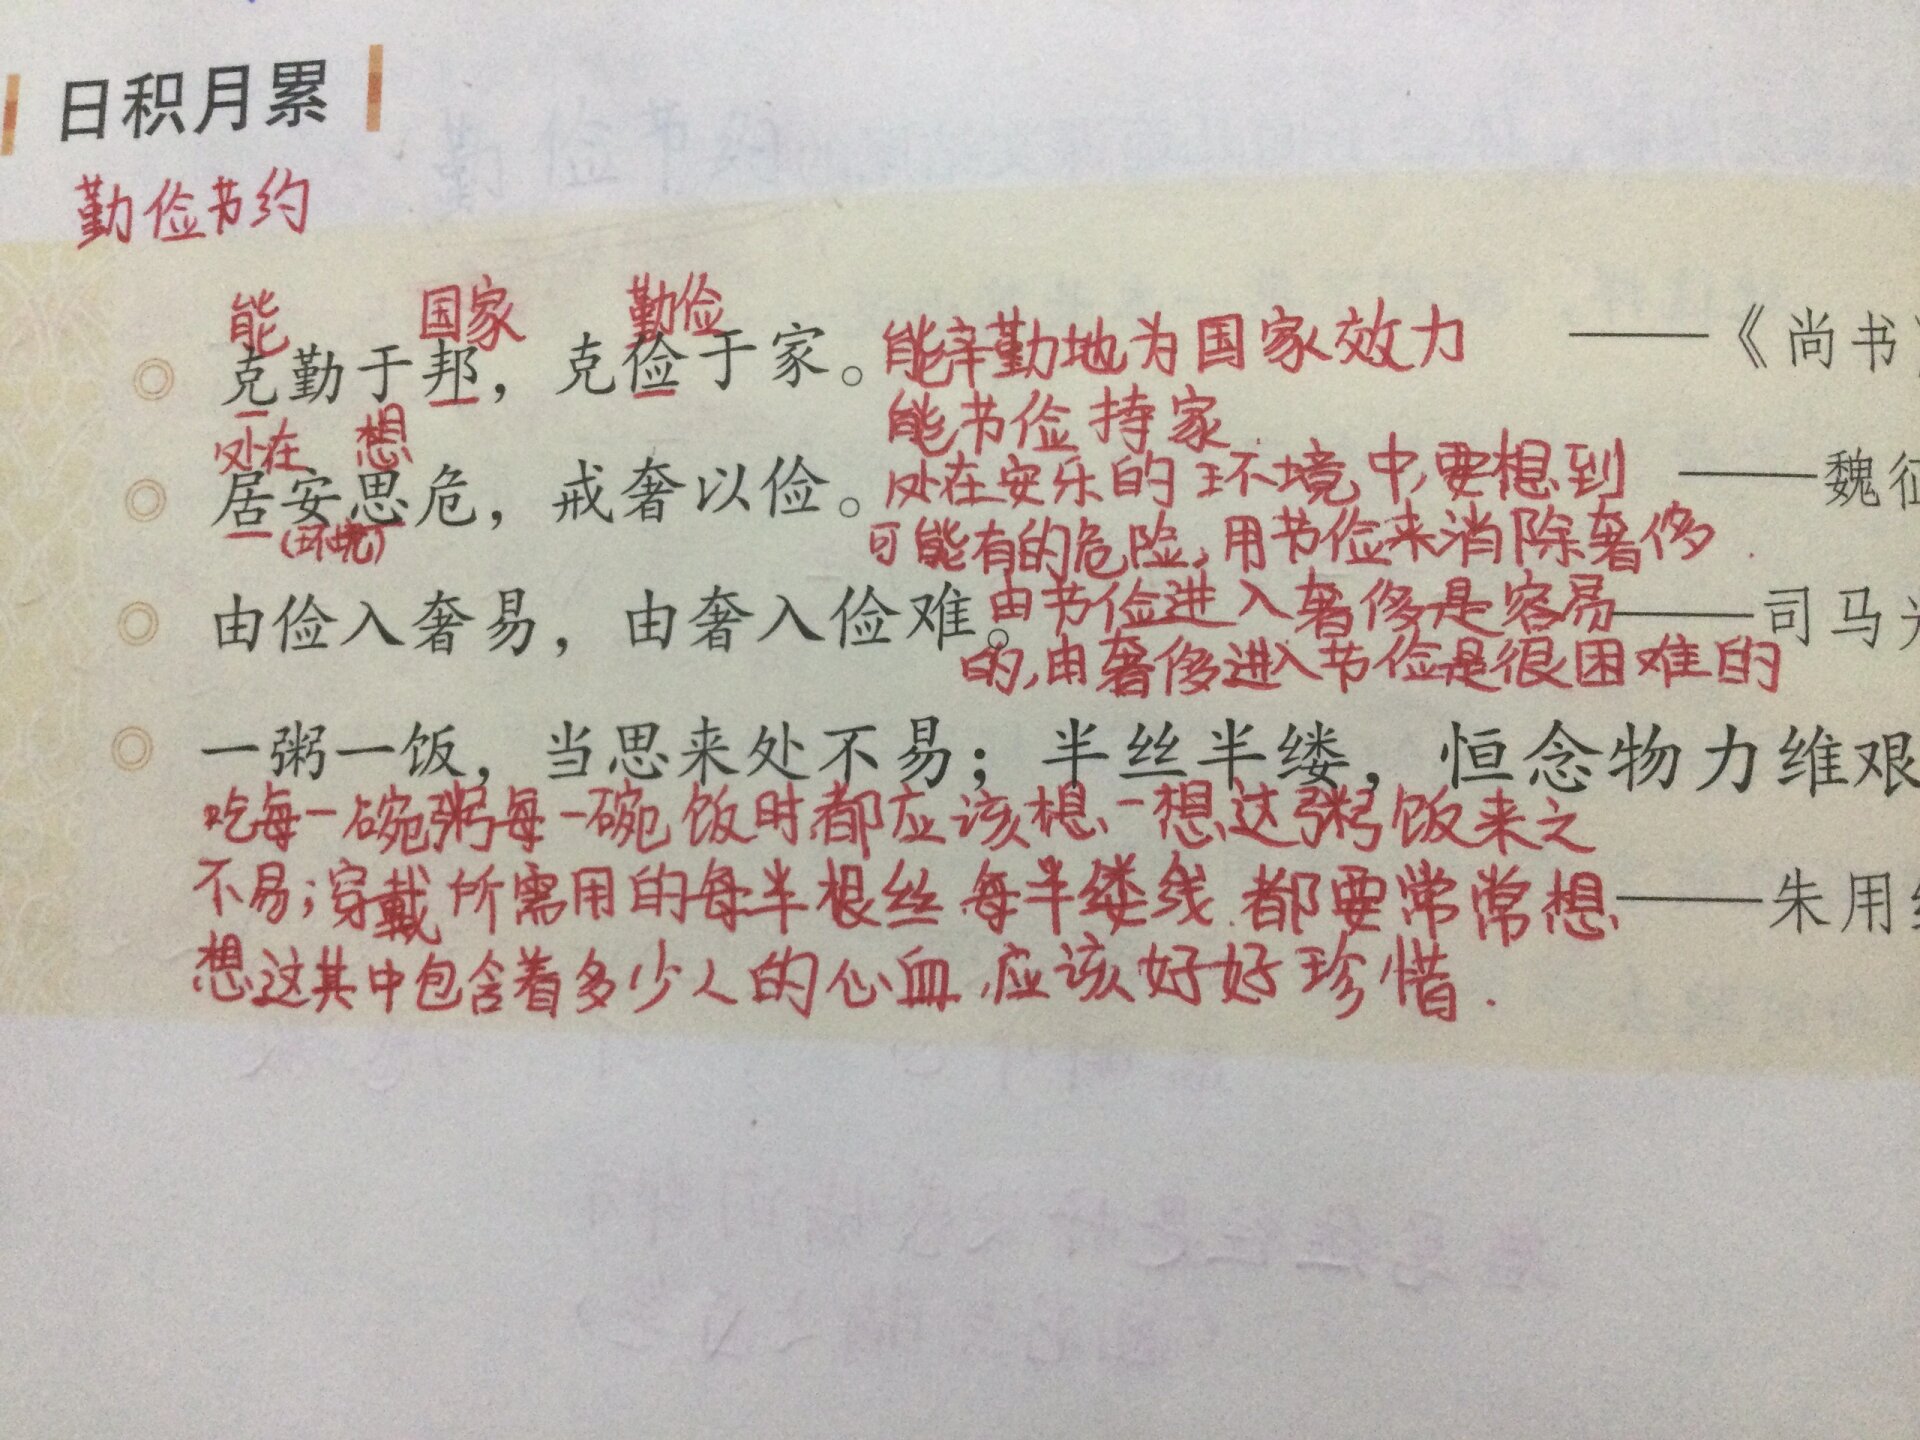 日积月累
勤俭节约
能 国家 勤俭
克勤于邦，克俭于家。 ——《尚书
能辛勤地为国家效力
能节俭持家
处在 想
居安思危，戒奢以俭。 ——魏征
(环境)
处在安乐的环境中,要想到
可能有的危险,用节俭来消除奢侈
由俭入奢易，由奢入俭难。 ——司马光
由节俭进入奢侈是容易
的,由奢侈进入节俭是很困难的
一粥一饭，当思来处不易；半丝半缕，恒念物力维艰
吃每一碗粥每一碗饭时都应该想一想这粥饭来之
不易;穿戴所需用的每半根丝每半缕线都要常常想 ——朱用纯
想这其中包含着多少人的心血,应该好好珍惜.